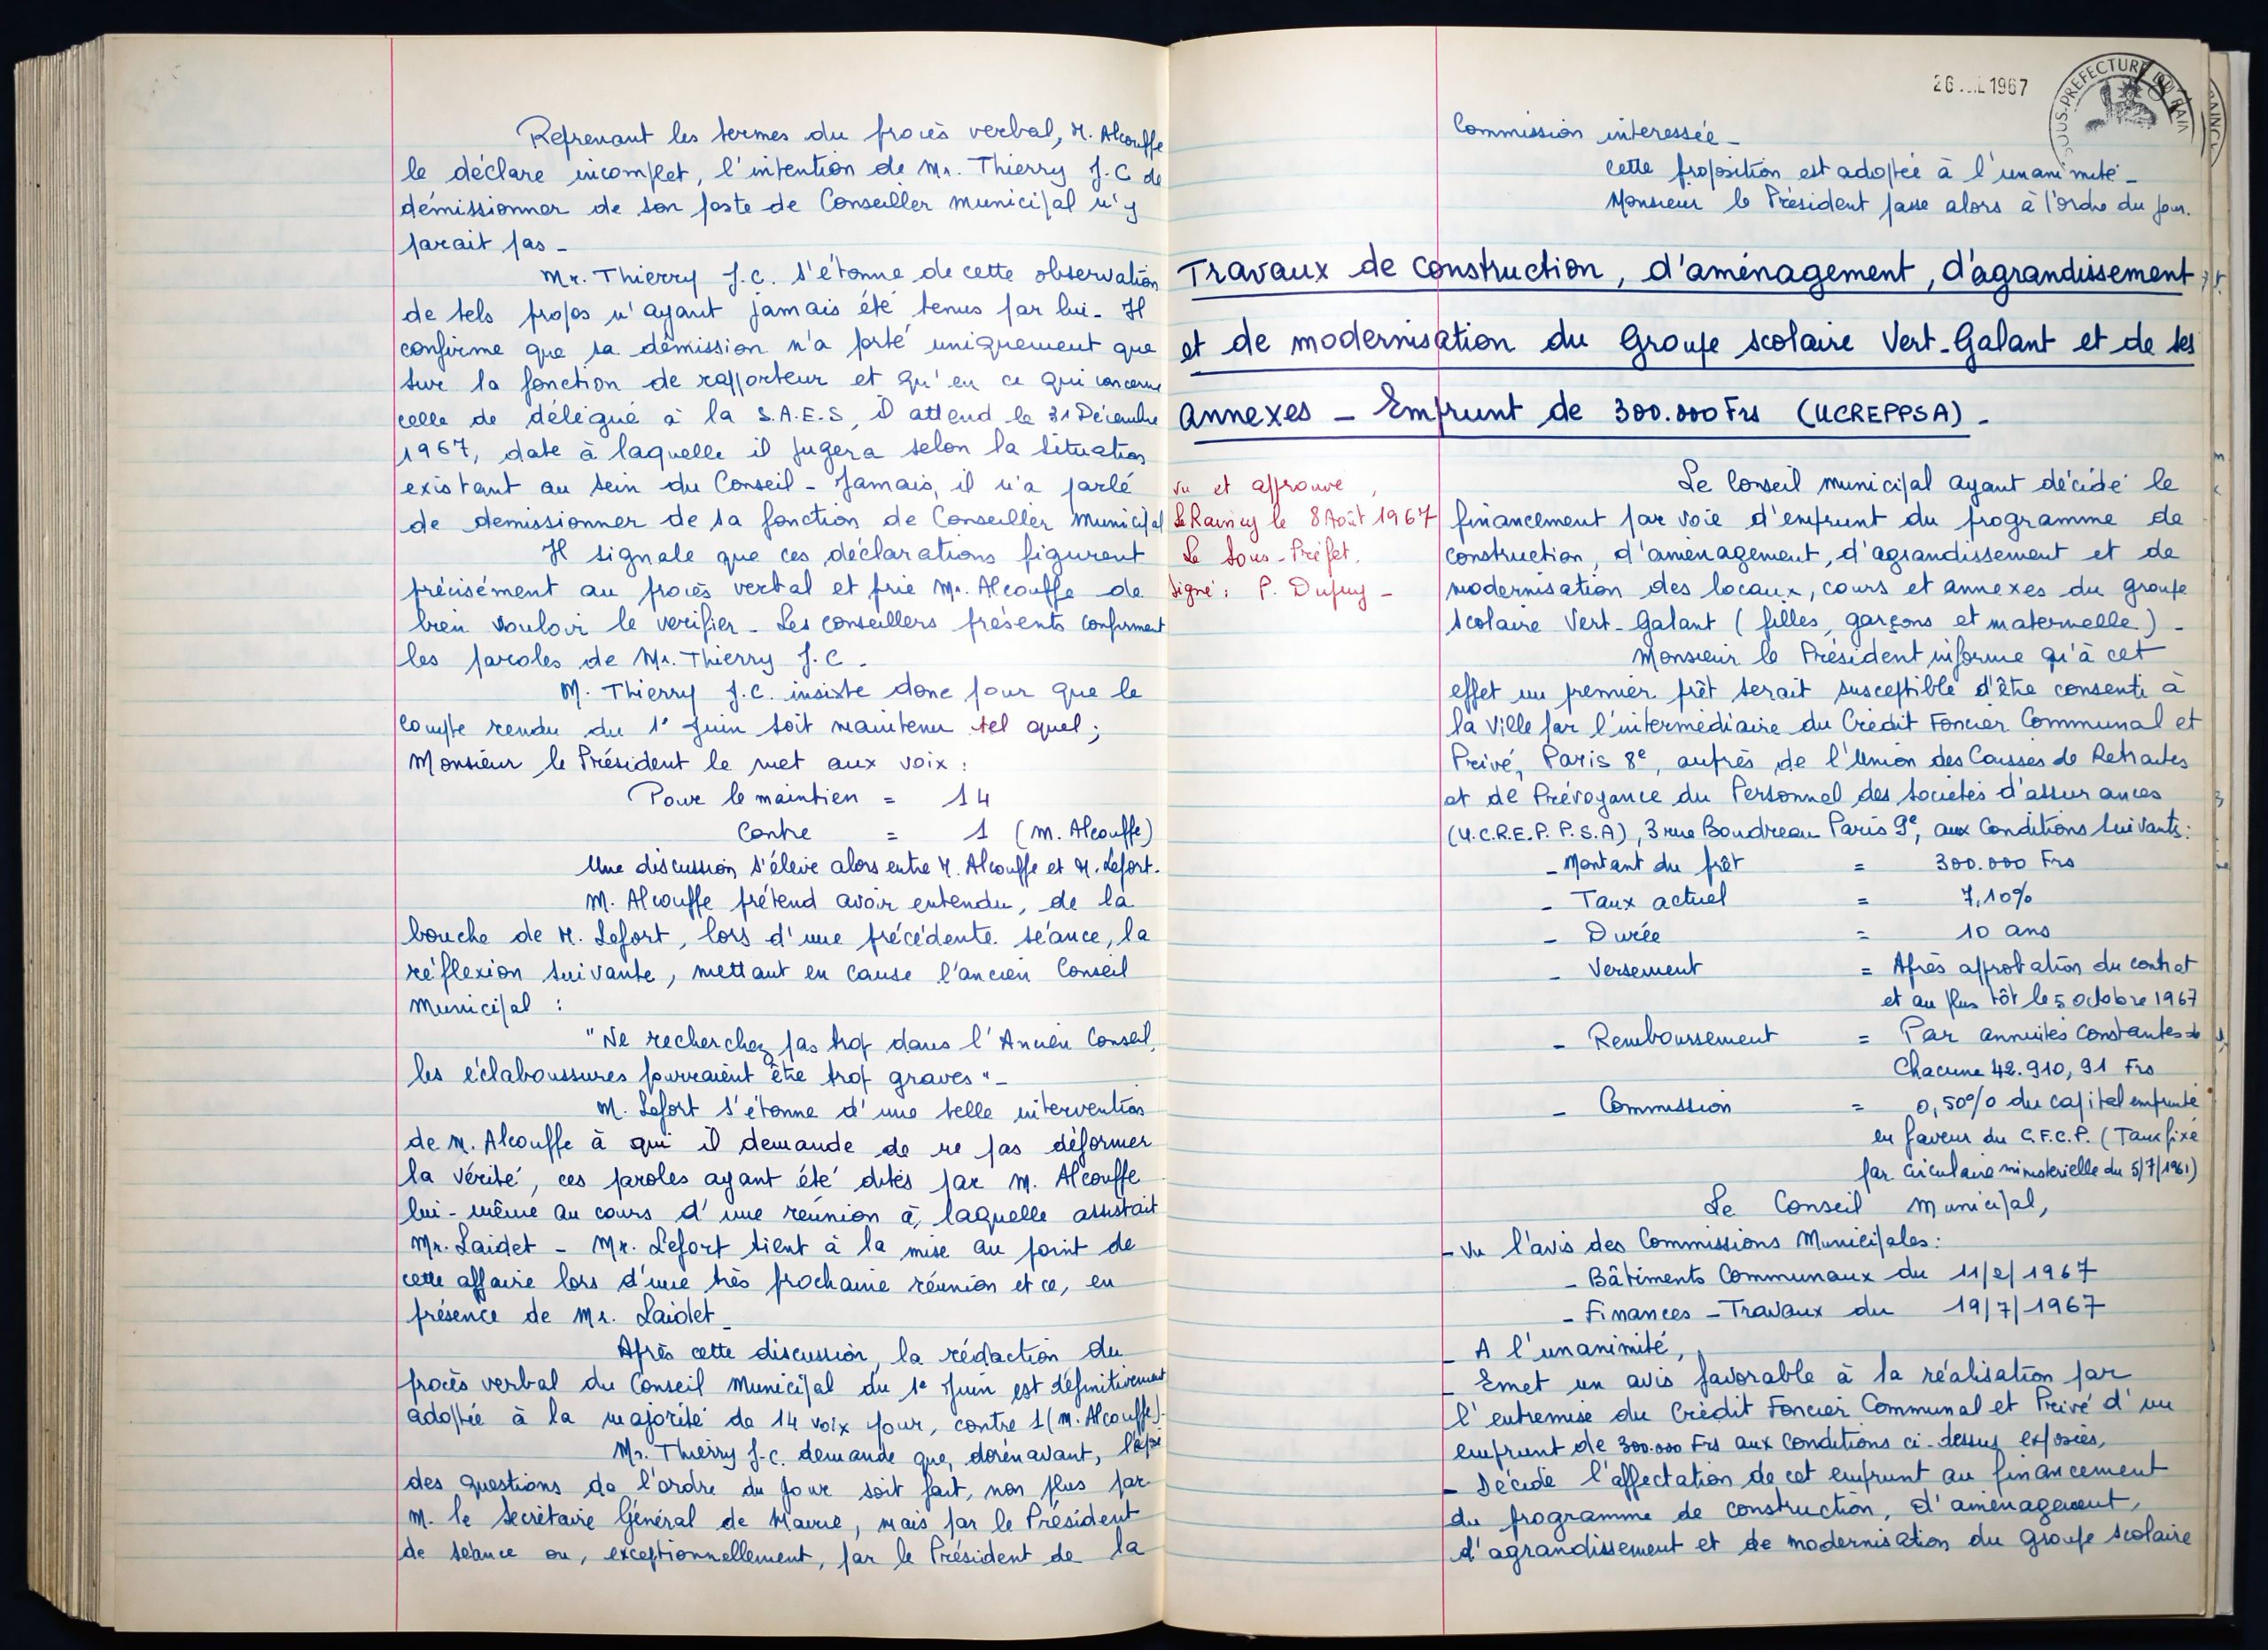 Reprenant les termes du procès verbal, M. Alcouffe
le déclare incomplet, l'intention de Mr. Thierry J.C de
démissionner de son poste de Conseiller Municipal n'y
parait pas _
Mr. Thierry J.C. s'étonne de cette observation
de tels propos n'ayant jamais été tenus par lui _ Il
confirme que sa démission n'a porté uniquement que
sur la fonction de rapporteur et qu'en ce qui concerne
celle de délégué à la S.A.E.S, il attend le 31 Décembre
1967, date à laquelle il jugera selon la situation
existant au sein du Conseil _ Jamais, il n'a parlé
de demissionner de sa fonction de Conseiller Municipal
Il signale que ces déclarations figurent
précisément au procès verbal et prie Mr. Alcouffe de
bien vouloir le verifier _ Les conseillers présents confirment
les paroles de Mr. Thierry J.C.
M. Thierry J.C. insiste donc pour que le
compte rendu du 1° Juin soit maintenu tel quel ;
Monsieur le Président le met aux voix :
Pour le maintien = 14
Contre = 1 (M. Alcouffe)
Une discussion s'élève alors entre M. Alcouffe et M. Lefort.
M. Alcouffe prétend avoir entendu, de la
bouche de M. Lefort, lors d'une précédente séance, la
réflexion suivante, mettant en cause l'ancien Conseil
Municipal :
"Ne recherchez pas trop dans l'Ancien Conseil,
les éclaboussures pourraient être trop graves" _
M. Lefort s'étonne d'une telle intervention
de M. Alcouffe à qui il demande de ne pas déformer
la vérité, ces paroles ayant été dites par M. Alcouffe
lui-même au cours d'une réunion à laquelle assistait
Mr. Laidet _ Mr. Lefort tient à la mise au point de
cette affaire lors d'une très prochaine réunion et ce, en
présence de Mr. Laidet _
Après cette discussion, la rédaction du
procès verbal du Conseil Municipal du 1e Juin est définitivement
adoptée à la majorité de 14 voix pour, contre 1 (M. Alcouffe) _
Mr. Thierry J-C. demande que, dorénavant,
des questions de l'ordre du jour soit fait, non plus par
M. le Secrétaire Général de Mairie, mais par le Président
de séance ou, exceptionnellement, par le Président de la
26 1967
SOUS-PREFECTURE DU
Commission interessée _
Cette proposition est adoptée à l'unanimité _
Monsieur le Président passe alors à l'ordre du jour.
Travaux de construction, d'aménagement, d'agrandissement
et de modernisation du Groupe scolaire Vert-Galant et de ses
Annexes _ Emprunt de 300.000 Frs (UCREPPSA) _
Vu et approuvé,
Le Raincy le 8 Août 1967
Le Sous-Préfet.
Signé : P. Dupuy _
Le Conseil Municipal ayant décidé le
financement par voie d'emprunt du programme de
construction, d'aménagement, d'agrandissement et de
modernisation des locaux, cours et annexes du groupe
scolaire Vert-Galant (filles, garçons et maternelle) _
Monsieur le Président informe qu'à cet
effet un premier prêt serait susceptible d'être consenti à
la Ville par l'intermédiaire du Crédit Foncier Communal et
Privé, Paris 8e, auprès de l'Union des Caisses de Retraites
et de Prévoyance du Personnel des Sociétés d'assurances
(U.C.R.E.P.P.S.A), 3 rue Boudreau Paris 9e, aux Conditions Suivants :
- Montant du prêt = 300.000 Frs
- Taux actuel = 7,10%
- Durée = 10 ans
- Versement = Après approbation du contrat
et au plus tôt le 5 Octobre 1967
- Remboursement = Par annuités constantes de
Chacune 42.910,91 Frs
- Commission = 0,50% du capital emprunté
en faveur du C.F.C.P. (Taux fixé
par circulaire ministerielle du 5/7/1961)
Le Conseil Municipal,
- Vu l'avis des Commissions Municipales :
- Bâtiments Communaux du 11/2/1967
- Finances - Travaux du 19/7/1967
- A l'unanimité,
- Emet un avis favorable à la réalisation par
l'entremise du Crédit Foncier Communal et Privé d'un
emprunt de 300.000 Frs aux conditions ci-dessus exposées,
- Décide l'affectation de cet emprunt au financement
du programme de construction, d'aménagement,
d'agrandissement et de modernisation du groupe scolaire